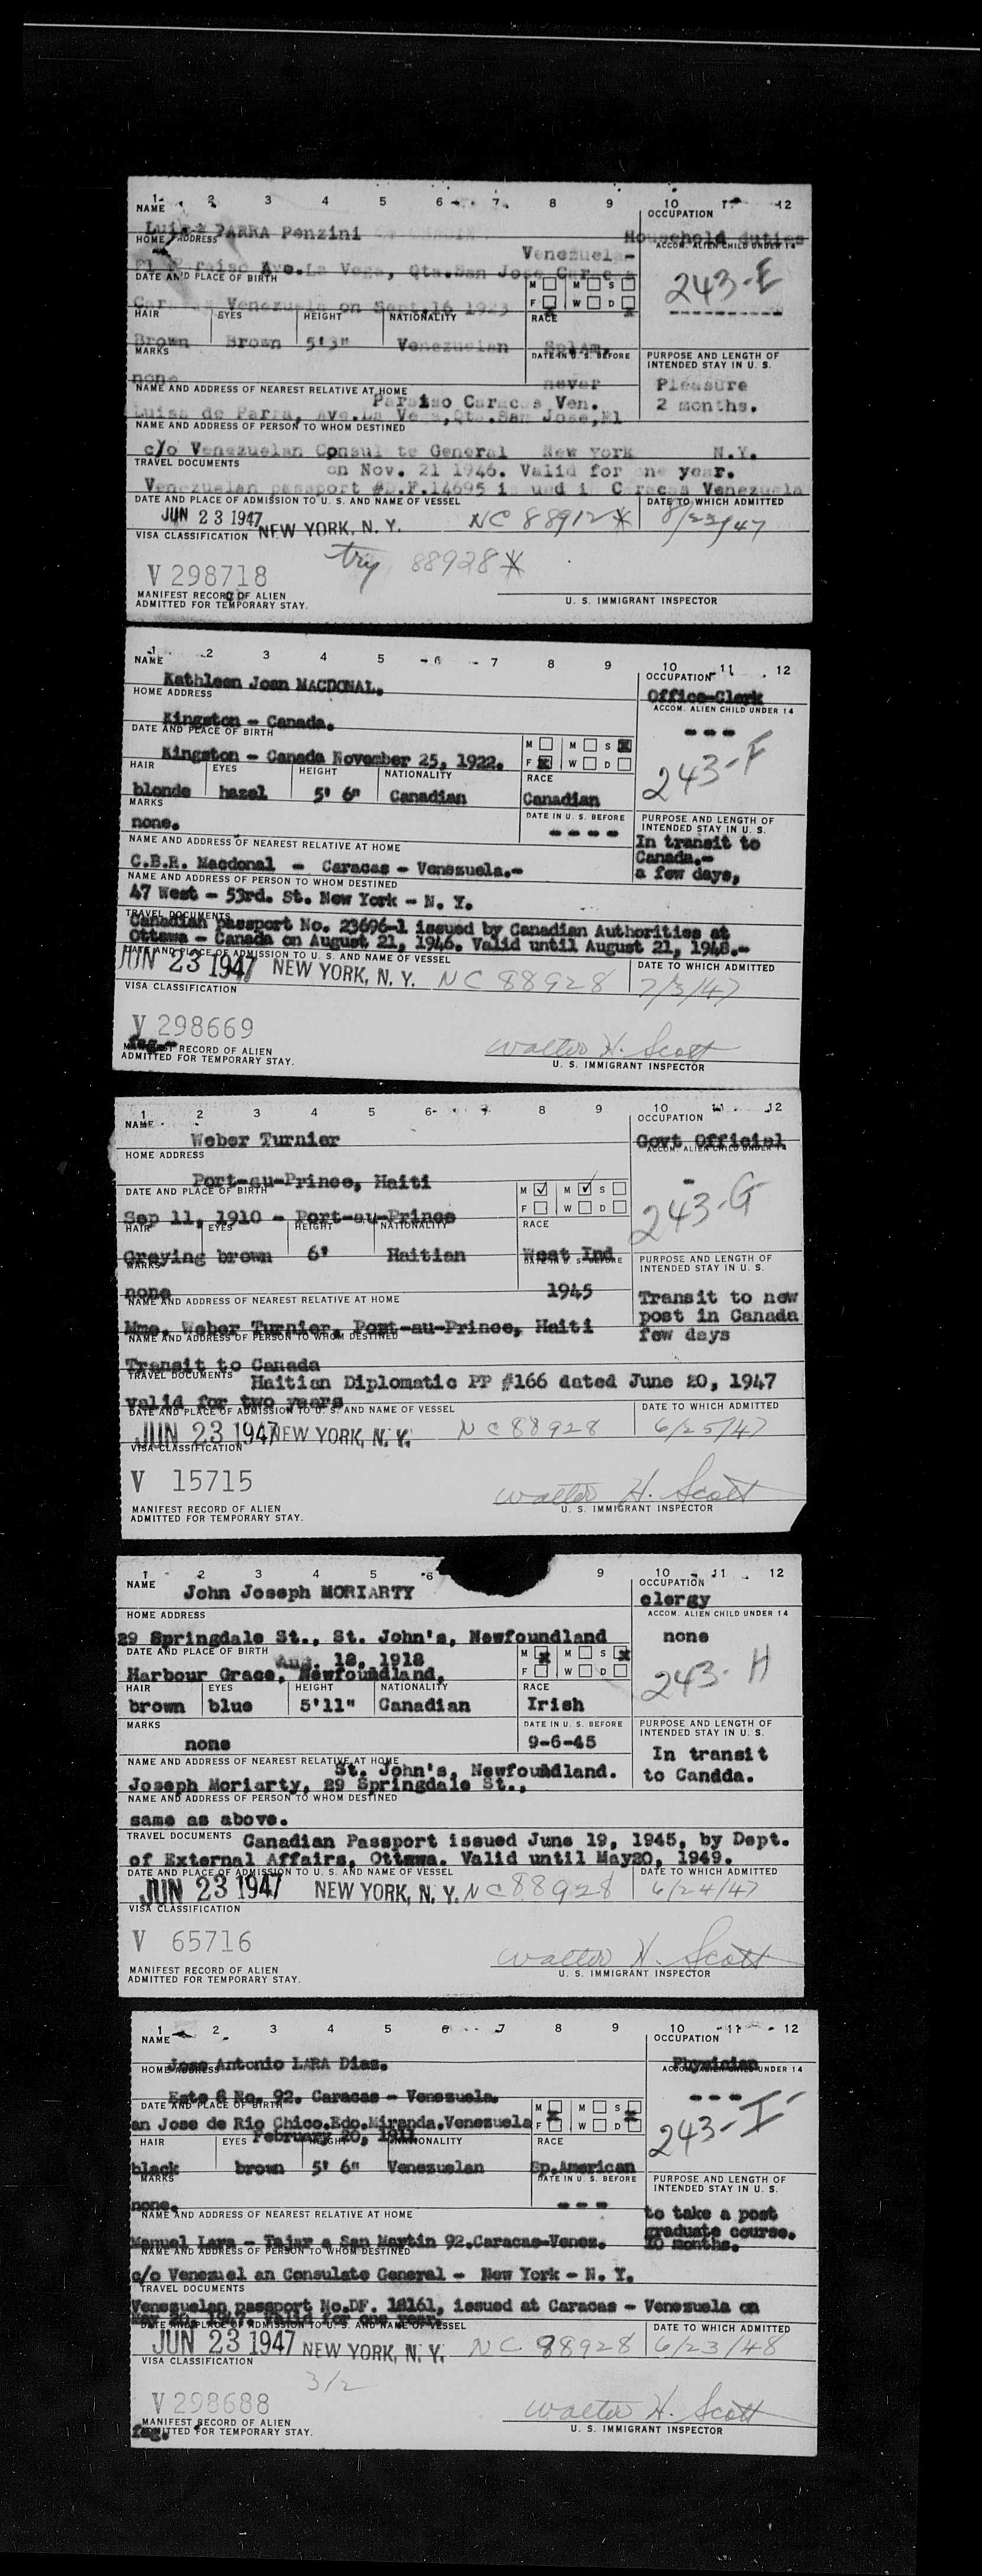 1 2 3 4 5 6 7 8 9 10 12
NAME OCCUPATION
Luisa PARRA Penzini Household duties
HOME ADDRESS ACCOM. ALIEN CHILD UNDER 14
Venezuela-
Ave.La Vega, Qta.San Jose
243-E
DATE AND PLACE OF BIRTH M M S
F W D
Venezuela on Sept.16 1923
HAIR EYES HEIGHT NATIONALITY RACE
Brown Brown 5'3" Venezuelan Sp.Am.
MARKS DATE IN U. S. BEFORE PURPOSE AND LENGTH OF
INTENDED STAY IN U. S.
none never Pleasure
2 months.
NAME AND ADDRESS OF NEAREST RELATIVE AT HOME
Paraiso Caracas Ven.
Luisa de Parra, Ave.La Vega,Qta.San Jose,El
NAME AND ADDRESS OF PERSON TO WHOM DESTINED
c/o Venezuelan Consulate General New York N.Y.
TRAVEL DOCUMENTS
on Nov. 21 1946. Valid for one year.
Venezuelan passport #D.F.14695 issued in Caracas Venezuela
DATE AND PLACE OF ADMISSION TO U. S. AND NAME OF VESSEL DATE TO WHICH ADMITTED
JUN 23 1947 NEW YORK, N. Y. NC 88912* 8/23/47
VISA CLASSIFICATION
try 88928*
V 298718
MANIFEST RECORD OF ALIEN
ADMITTED FOR TEMPORARY STAY. U. S. IMMIGRANT INSPECTOR
1 2 3 4 5 6 7 8 9 10 11 12
NAME OCCUPATION
Kathleen Joan MACDONAL. Office-Clerk
HOME ADDRESS ACCOM. ALIEN CHILD UNDER 14
Kingston - Canada. ---
DATE AND PLACE OF BIRTH M M S
F W D
Kingston - Canada November 25, 1922. 243-F
HAIR EYES HEIGHT NATIONALITY RACE
blonde hazel 5' 6" Canadian Canadian
MARKS DATE IN U. S. BEFORE PURPOSE AND LENGTH OF
INTENDED STAY IN U. S.
none. ----
In transit to
Canada.-
a few days,
NAME AND ADDRESS OF NEAREST RELATIVE AT HOME
C.B.R. Macdonal - Caracas - Venezuela.-
NAME AND ADDRESS OF PERSON TO WHOM DESTINED
47 West - 53rd. St. New York - N. Y.
TRAVEL DOCUMENTS
Canadian passport No. 23696-1 issued by Canadian Authorities at
Ottawa - Canada on August 21, 1946. Valid until August 21, 1948.-
DATE AND PLACE OF ADMISSION TO U. S. AND NAME OF VESSEL DATE TO WHICH ADMITTED
JUN 23 1947 NEW YORK, N. Y. NC 88928 7/3/47
VISA CLASSIFICATION
V 298669
Walter H. Scott
MANIFEST RECORD OF ALIEN
ADMITTED FOR TEMPORARY STAY. U. S. IMMIGRANT INSPECTOR
1 2 3 4 5 6 7 8 9 10 11 12
NAME OCCUPATION
Weber Turnier Govt Official
HOME ADDRESS ACCOM. ALIEN CHILD UNDER 14
Port-au-Prince, Haiti -
DATE AND PLACE OF BIRTH M M S
F W D
Sep 11, 1910 - Port-au-Prince 243-G
HAIR EYES HEIGHT NATIONALITY RACE
Greying brown 6' Haitian West Ind
MARKS DATE IN U. S. BEFORE PURPOSE AND LENGTH OF
INTENDED STAY IN U. S.
none 1945
Transit to new
post in Canada
few days
NAME AND ADDRESS OF NEAREST RELATIVE AT HOME
Mme. Weber Turnier, Port-au-Prince, Haiti
NAME AND ADDRESS OF PERSON TO WHOM DESTINED
Transit to Canada
TRAVEL DOCUMENTS Haitian Diplomatic PP #166 dated June 20, 1947
valid for two years
DATE AND PLACE OF ADMISSION TO U. S. AND NAME OF VESSEL DATE TO WHICH ADMITTED
JUN 23 1947 NEW YORK, N. Y. NC 88928 6/25/47
VISA CLASSIFICATION
V 15715
Walter H. Scott
MANIFEST RECORD OF ALIEN
ADMITTED FOR TEMPORARY STAY. U. S. IMMIGRANT INSPECTOR
1 2 3 4 5 6 9 10 11 12
NAME OCCUPATION
John Joseph MORIARTY clergy
HOME ADDRESS ACCOM. ALIEN CHILD UNDER 14
29 Springdale St., St. John's, Newfoundland none
DATE AND PLACE OF BIRTH M M S
F W D
Aug. 18, 1918
Harbour Grace, Newfoundland. 243-H
HAIR EYES HEIGHT NATIONALITY RACE
brown blue 5'11" Canadian Irish
MARKS DATE IN U. S. BEFORE PURPOSE AND LENGTH OF
INTENDED STAY IN U. S.
none 9-6-45
In transit
to Candda.
NAME AND ADDRESS OF NEAREST RELATIVE AT HOME
St. John's, Newfoundland.
Joseph Moriarty, 29 Springdale St.,
NAME AND ADDRESS OF PERSON TO WHOM DESTINED
same as above.
TRAVEL DOCUMENTS Canadian Passport issued June 19, 1945, by Dept.
of External Affairs, Ottawa. Valid until May20, 1949.
DATE AND PLACE OF ADMISSION TO U. S. AND NAME OF VESSEL DATE TO WHICH ADMITTED
JUN 23 1947 NEW YORK, N. Y. NC 88928 6/24/47
VISA CLASSIFICATION
V 65716
Walter H. Scott
MANIFEST RECORD OF ALIEN
ADMITTED FOR TEMPORARY STAY. U. S. IMMIGRANT INSPECTOR
1 2 3 4 5 6 7 8 9 10 11 12
NAME OCCUPATION
Jose Antonio LARA Diaz. Physician
HOME ADDRESS ACCOM. ALIEN CHILD UNDER 14
Este 8 No. 92. Caracas - Venezuela. ---
DATE AND PLACE OF BIRTH M M S
F W D
an Jose de Rio Chico.Edo.Miranda.Venezuela
February 20, 1911 243-I
HAIR EYES HEIGHT NATIONALITY RACE
black brown 5' 6" Venezuelan Sp.American
MARKS DATE IN U. S. BEFORE PURPOSE AND LENGTH OF
INTENDED STAY IN U. S.
none. ---
to take a post
graduate course.
10 months.
NAME AND ADDRESS OF NEAREST RELATIVE AT HOME
Manuel Lara - Tajar a San Martin 92.Caracas-Venez.
NAME AND ADDRESS OF PERSON TO WHOM DESTINED
c/o Venezuel an Consulate General - New York - N. Y.
TRAVEL DOCUMENTS
Venezuelan passport No.DF. 18161, issued at Caracas - Venezuela on
May 20, 1947. Valid for one year.
DATE AND PLACE OF ADMISSION TO U. S. AND NAME OF VESSEL DATE TO WHICH ADMITTED
JUN 23 1947 NEW YORK, N. Y. NC 88928 6/23/48
VISA CLASSIFICATION
3/2
V 298688
Walter H. Scott
MANIFEST RECORD OF ALIEN
ADMITTED FOR TEMPORARY STAY. U. S. IMMIGRANT INSPECTOR